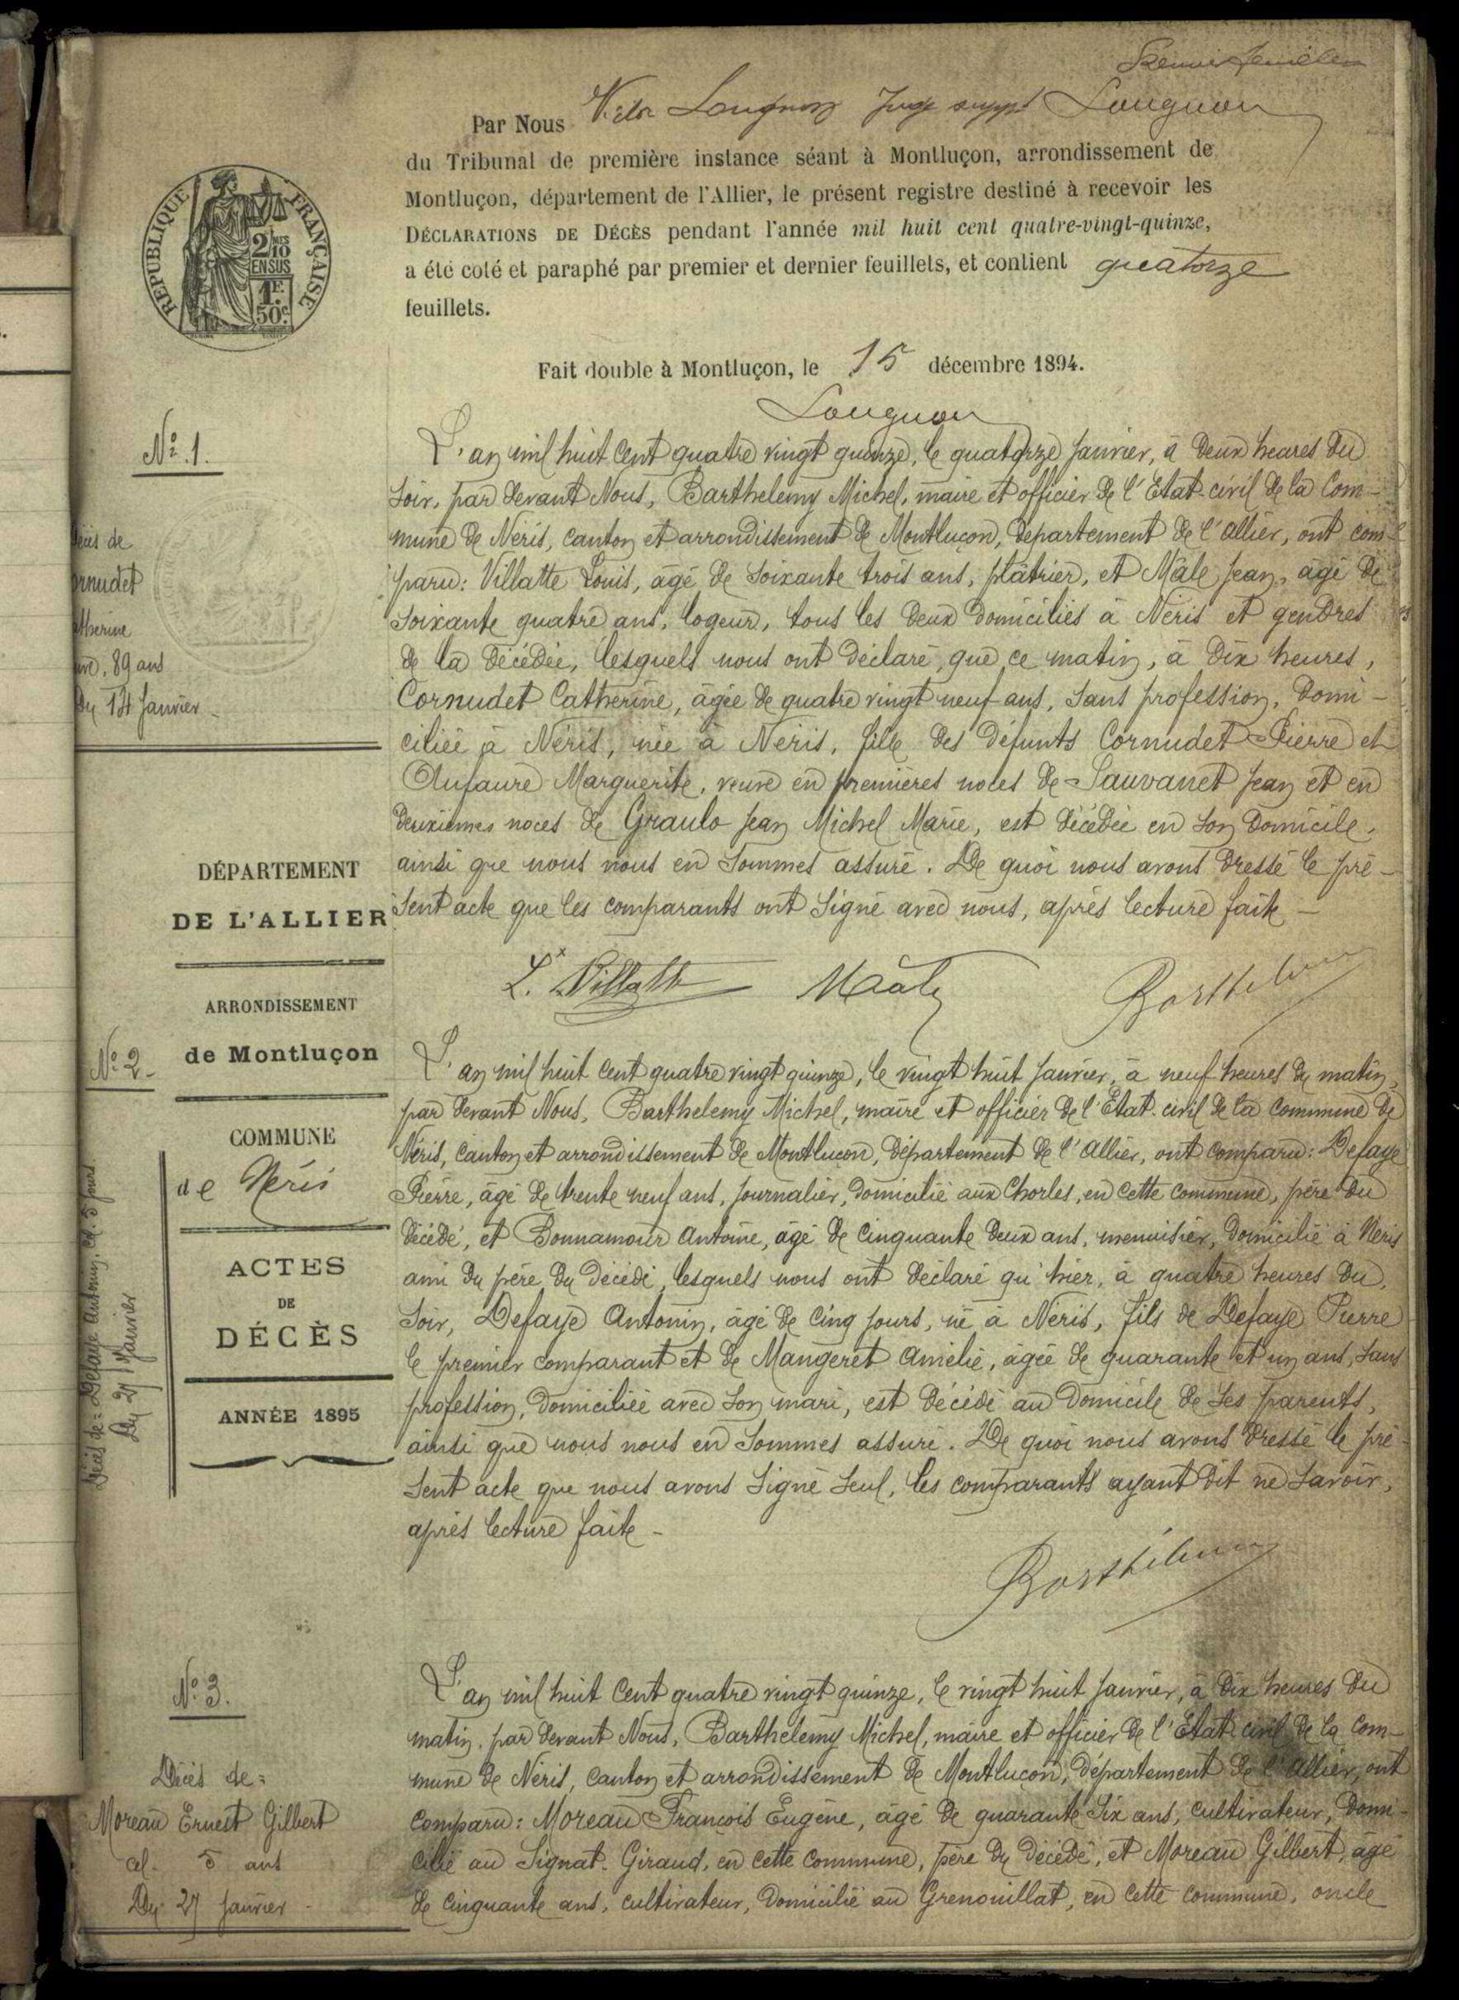 Premier feuillet
Par Nous Victor Lougnon Juge suppt Lougnon
du Tribunal de première instance séant à Montluçon, arrondissement de
Montluçon, département de l'Allier, le présent registre destiné à recevoir les
DÉCLARATIONS DE DÉCÈS pendant l'année mil huit cent quatre-vingt-quinze,
a été coté et paraphé par premier et dernier feuillets, et contient quatorze
feuillets.
Fait double à Montluçon, le 15 décembre 1894.
Lougnon
RÉPUBLIQUE FRANÇAISE
2/10
EN SUS
1F.
50c.
No. 1.
Décès de
Cornudet
Catherine
veuve, 89 ans
Du 14 Janvier
L'an mil huit cent quatre vingt quinze, le quatorze Janvier, à deux heures du
soir, par devant Nous, Barthelemy Michel, maire et officier de l'Etat-civil de la Com-
mune de Néris, canton et arrondissement de Montluçon, département de l'Allier, ont com-
paru: Villatte Louis, âgé de soixante trois ans, plâtrier, et Mâle Jean, âgé de
soixante quatre ans, logeur, tous les deux domiciliés à Néris et gendres
de la décédée, lesquels nous ont déclaré, que ce matin, à dix heures,
Cornudet Catherine, âgée de quatre vingt neuf ans, sans profession, domi-
ciliée à Néris, née à Néris, fille des défunts Cornudet Pierre et
Aufaure Marguerite, veuve en premières noces de Sauvanet Jean et en
deuxièmes noces de Graulo Jean Michel Marie, est décédée en son domicile,
ainsi que nous nous en sommes assuré. De quoi nous avons dressé le pré-
sent acte que les comparants ont signé avec nous, après lecture faite —
L. Villatte Mâle Barthélemy
DÉPARTEMENT
DE L'ALLIER
ARRONDISSEMENT
de Montluçon
COMMUNE
de Néris
ACTES
DE
DÉCÈS
ANNÉE 1895
No. 2
Décès de = Defaye Antonin, cel. 5 jours.
Du 27 Janvier
L'an mil huit cent quatre vingt quinze, le vingt huit Janvier, à neuf heures du matin,
par devant Nous, Barthelemy Michel, maire et officier de l'Etat-civil de la commune de
Néris, canton et arrondissement de Montluçon, département de l'Allier, ont comparu: Defaye
Pierre, âgé de trente neuf ans, journalier, domicilié aux Chorles, en cette commune, père du
décédé, et Bonnamour Antoine, âgé de cinquante deux ans, menuisier, domicilié à Néris
ami du père du décédé, lesquels nous ont déclaré qu'hier, à quatre heures du
soir, Defaye Antonin, âgé de cinq jours, né à Néris, fils de Defaye Pierre
le premier comparant et de Mangeret Amélie, âgée de quarante et un ans, sans
profession, domiciliée avec son mari, est décédé au domicile de ses parents,
ainsi que nous nous en sommes assuré. De quoi nous avons dressé le pré-
sent acte que nous avons signé seul, les comparants ayant dit ne savoir,
après lecture faite —
Barthélemy
No. 3.
Décès de =
Moreau Ernest Gilbert
cel. 5 ans
Du 27 Janvier
L'an mil huit cent quatre vingt quinze, le vingt huit Janvier, à dix heures du
matin, par devant Nous, Barthelemy Michel, maire et officier de l'Etat-civil de la Com-
mune de Néris, canton et arrondissement de Montluçon, département de l'Allier, ont
comparu: Moreau François Eugène, âgé de quarante six ans, cultivateur, domi-
cilié au Signat-Giraud, en cette commune, père du décédé, et Moreau Gilbert, âgé
de cinquante ans, cultivateur, domicilié au Grenouillat, en cette commune, oncle